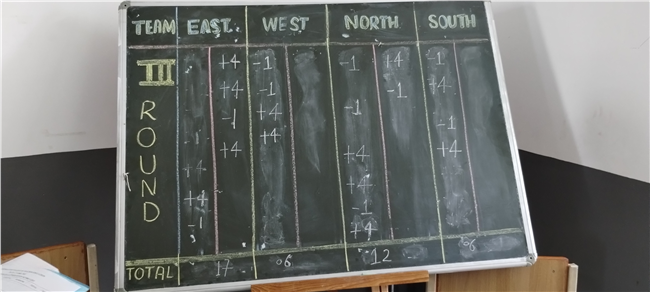 TEAM EAST WEST NORTH SOUTH
III +4 -1 -1 +4 -1
+4 -1 -1 +4
R -1 +4 -1 -1
O -1 +4 +4 +4 +4
U +4
N +4 +4
D -1 -1 +4
TOTAL 17 06 12 06